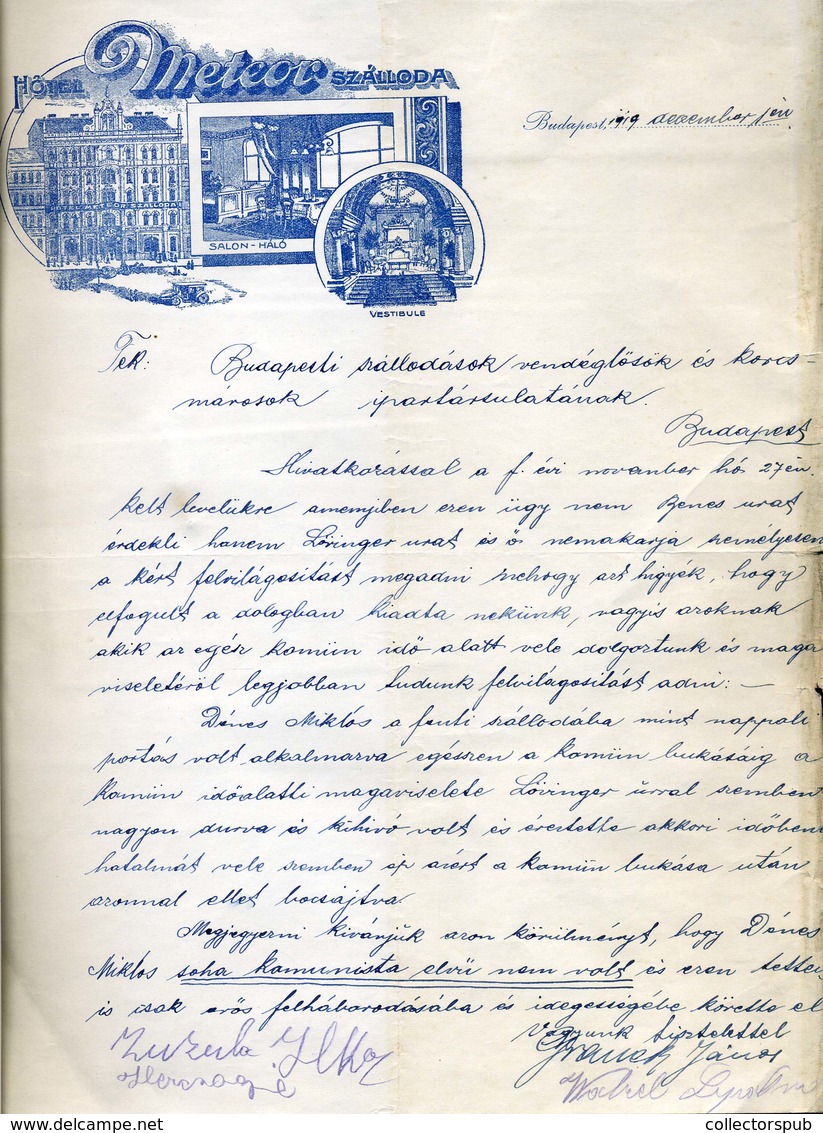 HÔTEL Meteor SZÁLLODA
Budapest, 1919 dezember jén
HOTEL METEOR SZÁLLODA
SALON - HÁLÓ
VESTIBULE
Tek: Budapesti szállodások vendéglősök és korcs-
márosok ipartársulatának.
Budapest
Hivatkozással a f. évi november hó 27én
kelt levelükre amenyiben ezen ügy nem Benes urat
érdekli hanem Lőringer urat és ő nemakarja személyesen
a kért felvilágositást megadni nehogy azt higyék, hogy
elfogult a dologban kiadta nekünk, vagyis azoknak
akik az egész komün idő alatt vele dolgoztunk és maga
viseletéről legjobban tudunk felvilágositást adni: —
Dénes Miklós a fenti szállodába mint nappali
portás volt alkalmazva egészen a komün bukásáig a
komün időalatti magaviselete Lővinger úrral szemben
nagyon durva és kihivó volt és éreztette akkori időben
hatalmát vele szemben ép azért a komün bukása után
azonnal ellet bocsájtva.
Megjegyezni kivánjuk azon körülményt, hogy Dénes
Miklós soha komunista elvü nem volt és ezen tettei
is csak erős felháborodásába és idegességébe követte el
Vagyunk tisztelettel
Ilka János
Herczogné
collectorspub.com